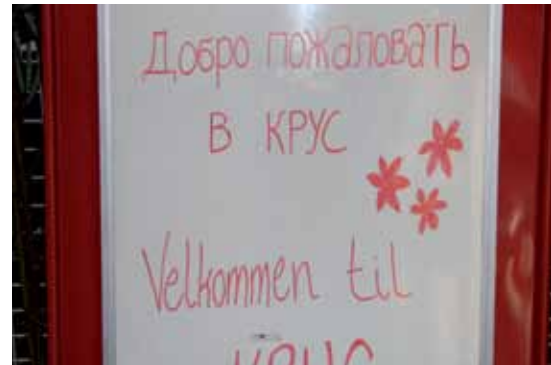 Добро пожаловать
в КРУС
Velkommen til